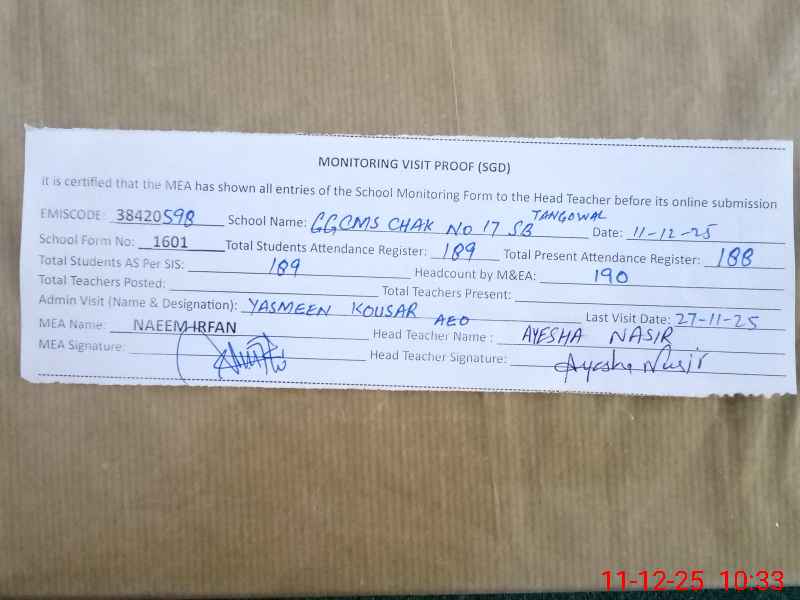 MONITORING VISIT PROOF (SGD)
it is certified that the MEA has shown all entries of the School Monitoring Form to the Head Teacher before its online submission
EMISCODE: 38420598 School Name: GGCMS CHAK NO 17 SB TANGOWAL Date: 11-12-25
School Form No: 1601 Total Students Attendance Register: 189 Total Present Attendance Register: 188
Total Students AS Per SIS: 189 Headcount by M&EA: 190
Total Teachers Posted: Total Teachers Present:
Admin Visit (Name & Designation): YASMEEN KOUSAR AEO Last Visit Date: 27-11-25
MEA Name: NAEEM IRFAN Head Teacher Name : AYESHA NASIR
MEA Signature: Head Teacher Signature: Ayesha Nasir
11-12-25 10:33